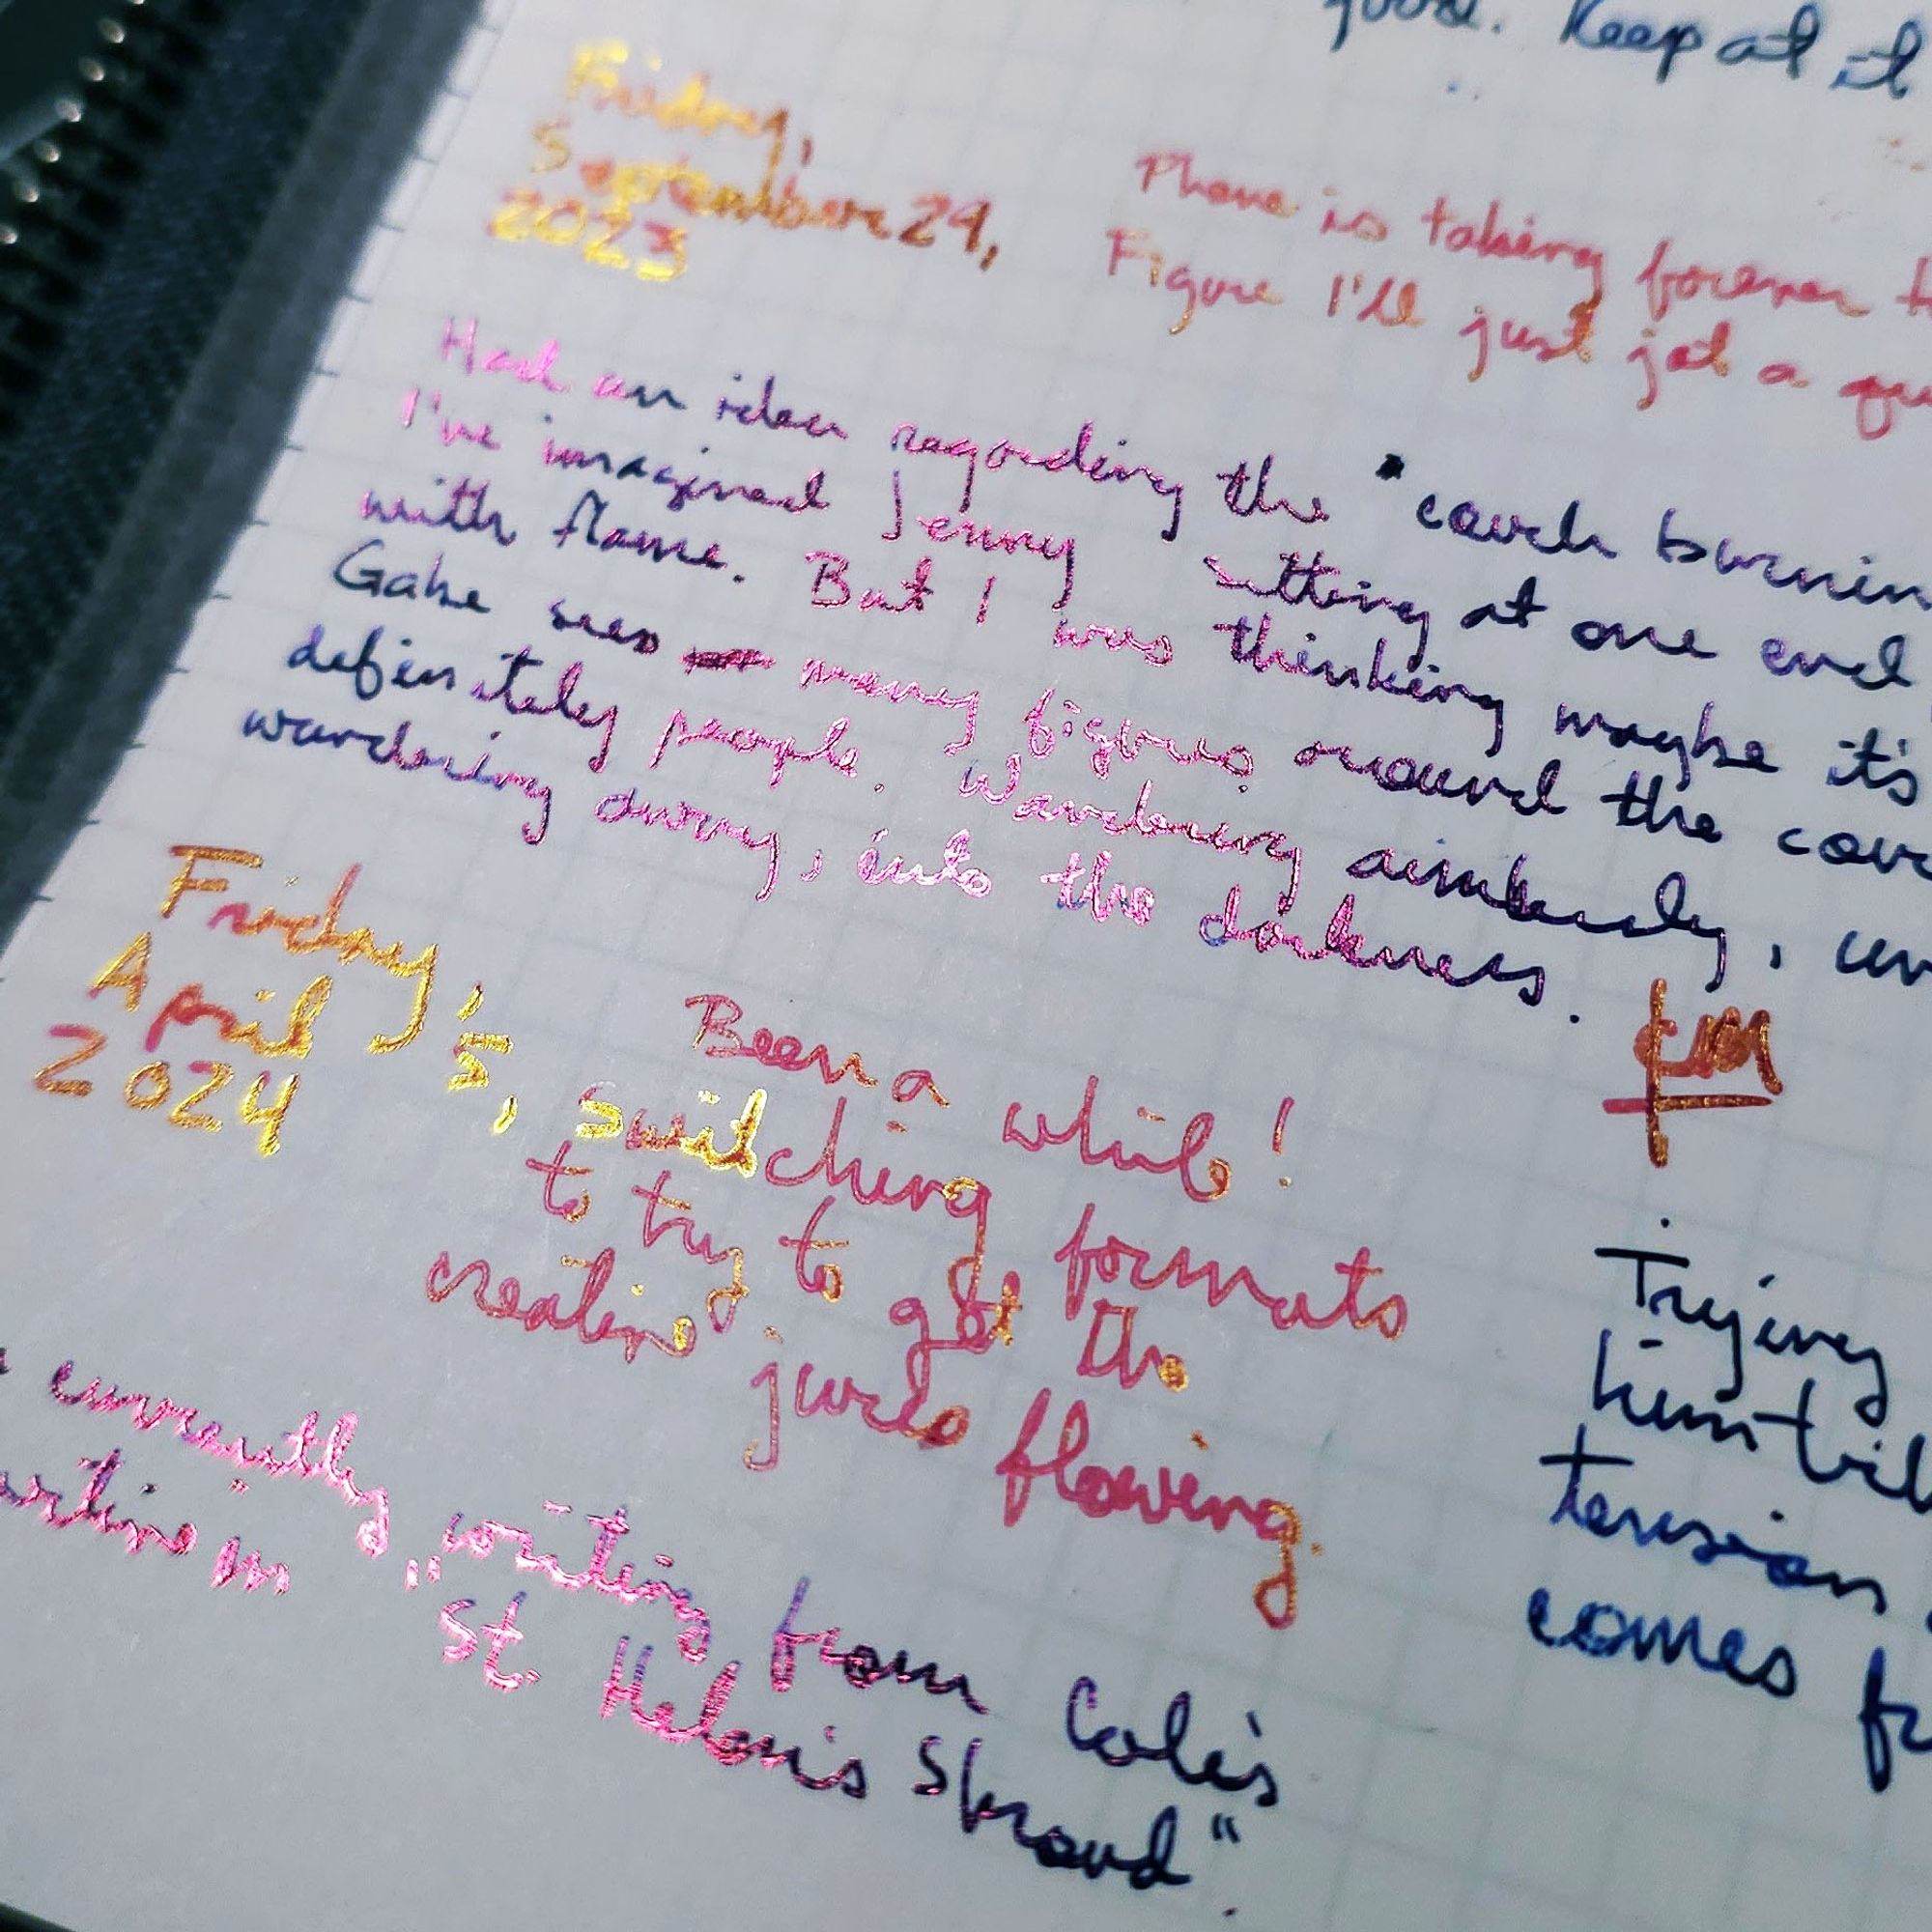 good. Keep at it
Friday,
September 29,
2023
Phone is taking forever t
Figure I'll just jot a qu
Had an idea regarding the "couch burnin
I've imagined Jenny sitting at one end
with flame. But I was thinking maybe it's
Gabe sees many figures around the couc
definitely people. Wandering aimlessly, un
wandering away, into the darkness.
Friday,
April 5,
2024
Been a while!
switching formats
to try to get the
creative juices flowing.
currently writing from Cole's
"St. Helen's Shroud".
Trying
him
tension
comes fr